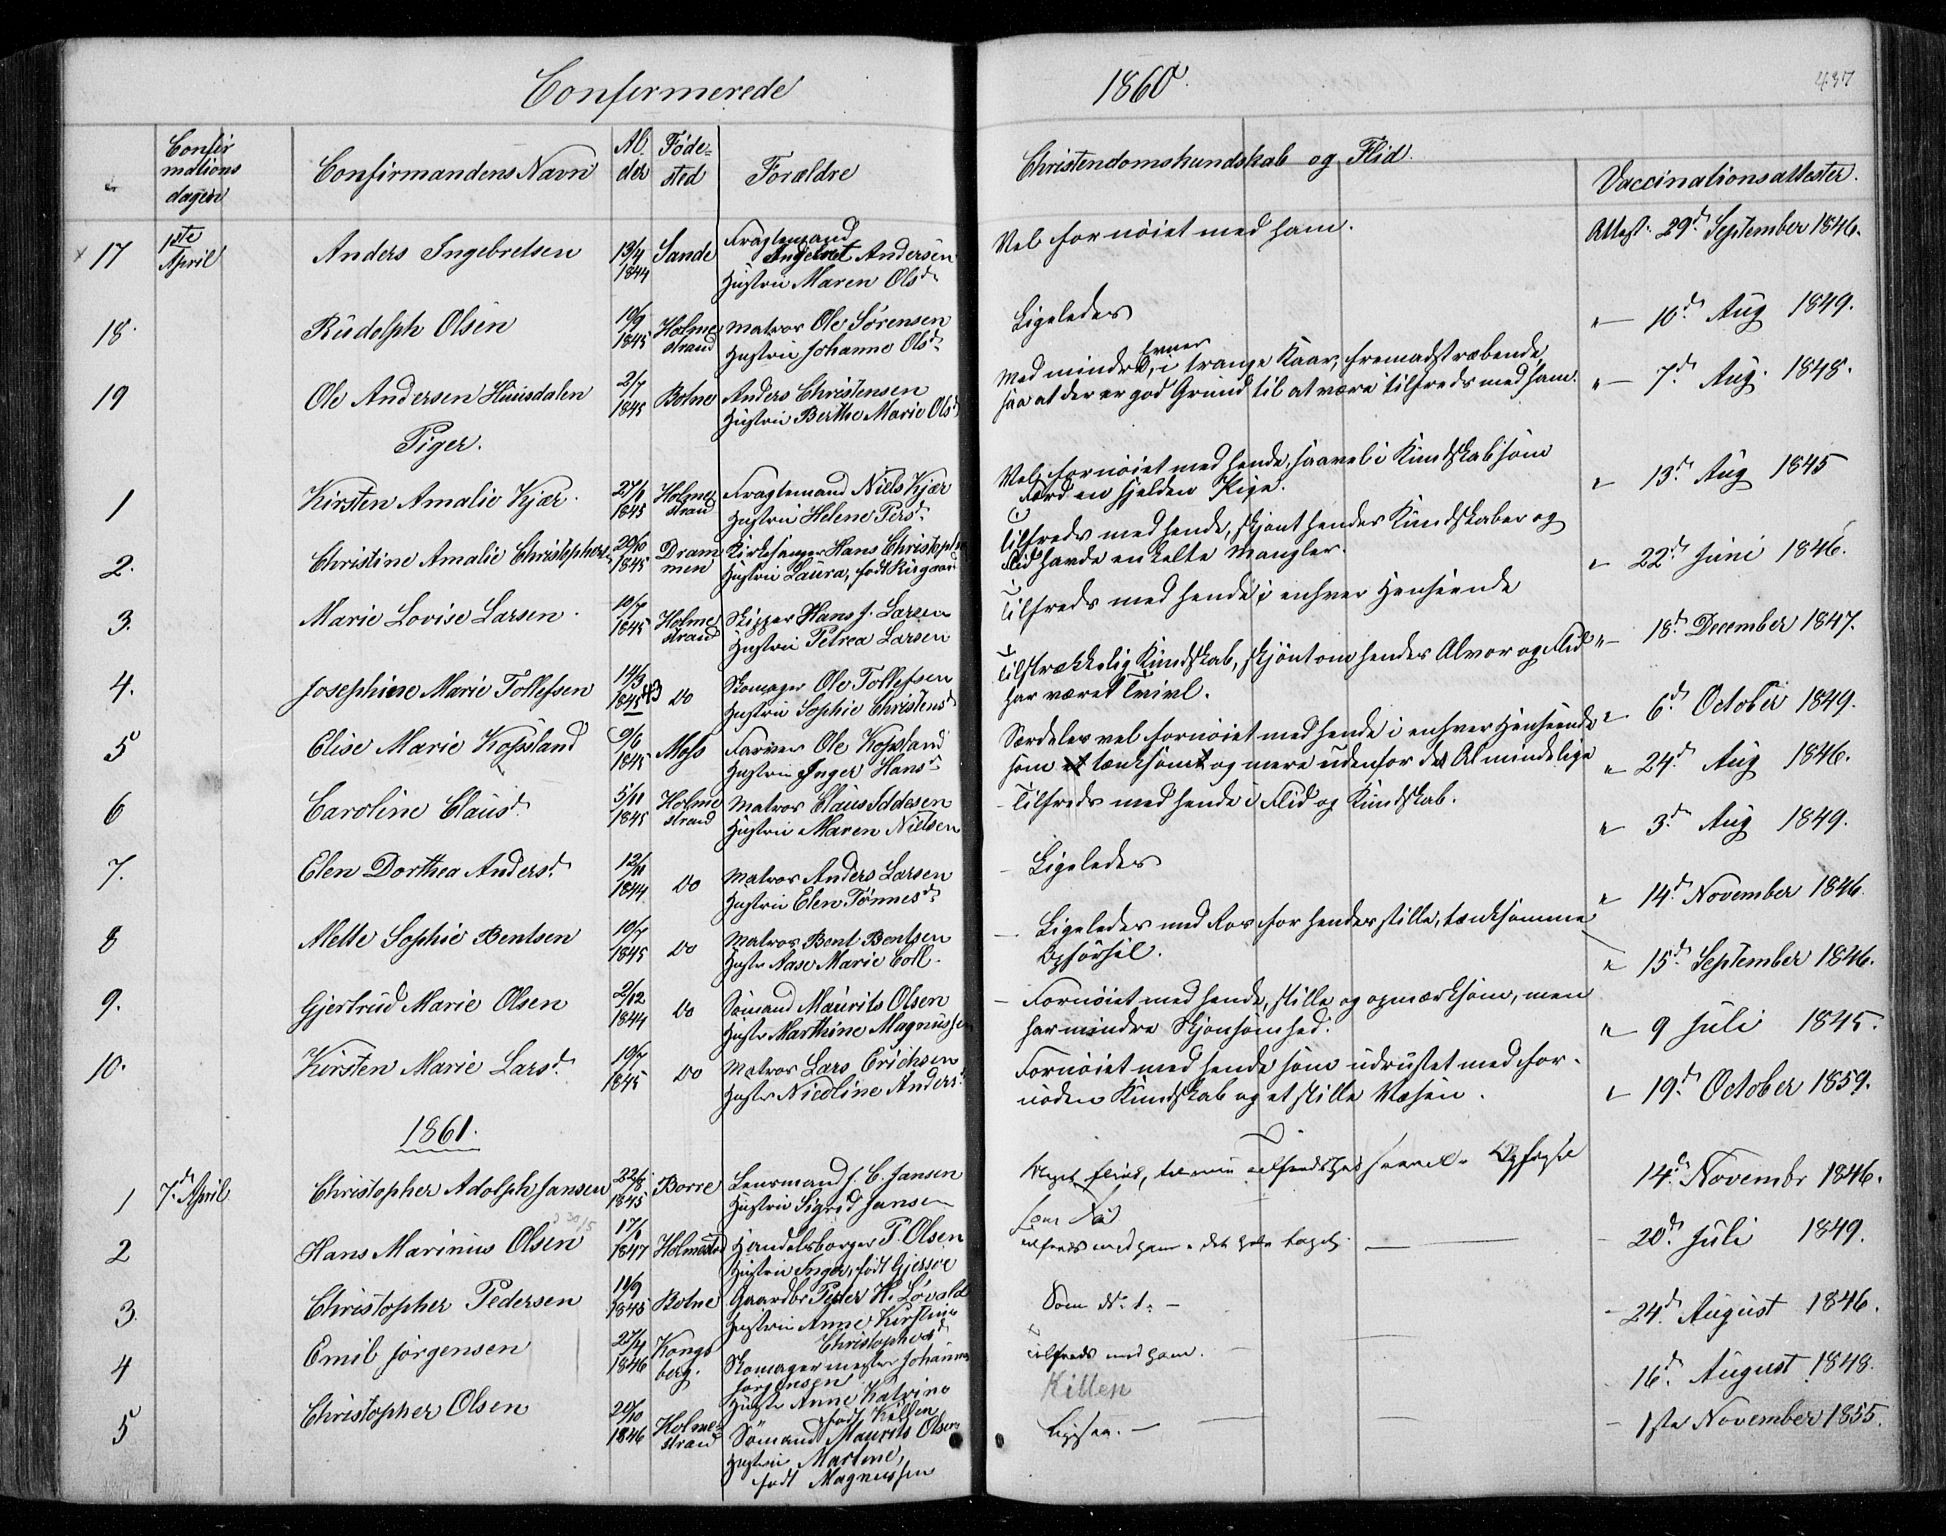 Confirmerede 1860. 437
Confirmationsdagen
Confirmandens Navn
Alder
Fødested
Forældre
Christendomskundskab og Flid.
Vaccinationsattester.
17 1ste April Anders Ingebretsen 13/4 1844 Sande Fragtemand Ingebret Andersen
Hustru Maren Olsd.
Vel fornøiet med ham.
Attest. 29d. September 1846.
18. Rudolph Olsen 10/9 1845 Holmestrand Matros Ole Sørensen
Hustru Johanne Olsd.
Ligeledes
" — 10d. Aug 1849.
19 Ole Andersen Huusdalen 2/7 1845 Botne Anders Christensen
Hustru Berthe Marie Olsd
Med mindre Evner, i trange Kaar, fremadstræbende,
saa at der er god Grund til at være tilfreds med ham.
" — 7d. Aug. 1848.
Piger.
1 Kirsten Amalie Kjær. 1845 Holmestrand Fragtemand Niels Kjær
Hustru Helene Persd.
Vel fornøiet med hende, saavel i Kundskab som
Færd en sjelden Pige.
" 13d. Aug 1845
2. Christine Amalie Christophers 20/10 1845 Drammen Kirkesanger Hans Christophe
Hustru Laura, født Risgaard
Tilfreds med hende, skjønt hendes Kundskaber og
Flid havde enkelte Mangler.
" 22d. Juni 1846.
3. Marie Lovise Larsen. 10/7 1845 Holmestrand Skipper Hans J. Larsen
Hustru Petrea Larsen
Tilfreds med hende i enhver Henseende
18d. December 1847.
4. Josephine Marie Tollefsen 14/9 1845 43 Do Skomager Ole Tollefsen
Hustru Sophie Christensd
Tilstrækkelig Kundskab, skjønt om hendes Alvor og Flid
har været Tvivl.
" 6d. October 1849.
5 Elise Marie Kopsland 9/6 1845 Moss Farver Ole Kopsland
Hustru Inger Hansd.
Særdeles vel fornøiet med hende i enhver Henseende
som tænksom og mere udenfor det Almindelige
" 24d. Aug 1846.
6 Caroline Clausd. 5/11 1845 Holmestrand Matros Claus Iddesen
Hustru Maren Nielsen
- Tilfreds med hende i Flid og Kundskab.
" 3d. Aug 1849.
7. Elen Dorthea Andersd. 1844 Do Matros Anders Larsen
Hustru Elen Tønnesd.
- Ligeledes
" 14d. November 1846.
8 Mette Sophie Bentsen 10/7 1845 Do Matros Bent Bentsen
Hustr Aase Marie Coll.
- Ligeledes med Ros for hendes stille, tænksomme
Opførsel.
" 15d. September 1846.
9. Gjertrud Marie Olsen 2/12 1844 Do Sömand Maurits Olsen
Hustr Marthine Magnussen
- Fornøiet med hende, stille og opmærksom, men
har mindre Skjønsomhed.
" 9 Juli 1845.
10. Kirsten Marie Larsd. 19/7 1845 Do Matros Lars Erichsen
Hustr Nicoline Andersd.
Fornøiet med hende som udrustet med for-
nøden Kundskab og et stille Væsen.
" 19d. October 1859.
1861.
1 7d. April Christopher Adolph Jansen 22/8 1845 Borre Lensmand J. C. Jansen
Hustru Sigrid Jansen
Meget flink,
14d. Novembr 1846.
2 Hans Marinus Olsen 1847 Holmestrand Handelsborger P. Olsen
Hustru Inger, født Gjersøe
Tilfreds med ham
- 20d. Juli 1849.
3. Christopher Pedersen 11/9 1845 Botne Gaardbr Peder H. Løvald
Hustru Anne Kirstine Christophersd
Som No. 1. -
- 24d. August 1846.
4 Emil Jørgensen 27/4 1846 Kongsberg. Skomagermester Johannes Jørgensen
Hustr Anne Katrine
født Killen
Tilfreds med ham.
Killen
16d. August 1848.
5 Christopher Olsen 20/10 1846 Holmestrand Sömand Maurits Olsen
Hustru Martine,
født Magnussen
Ligesaa. -
- 1ste November 1855.